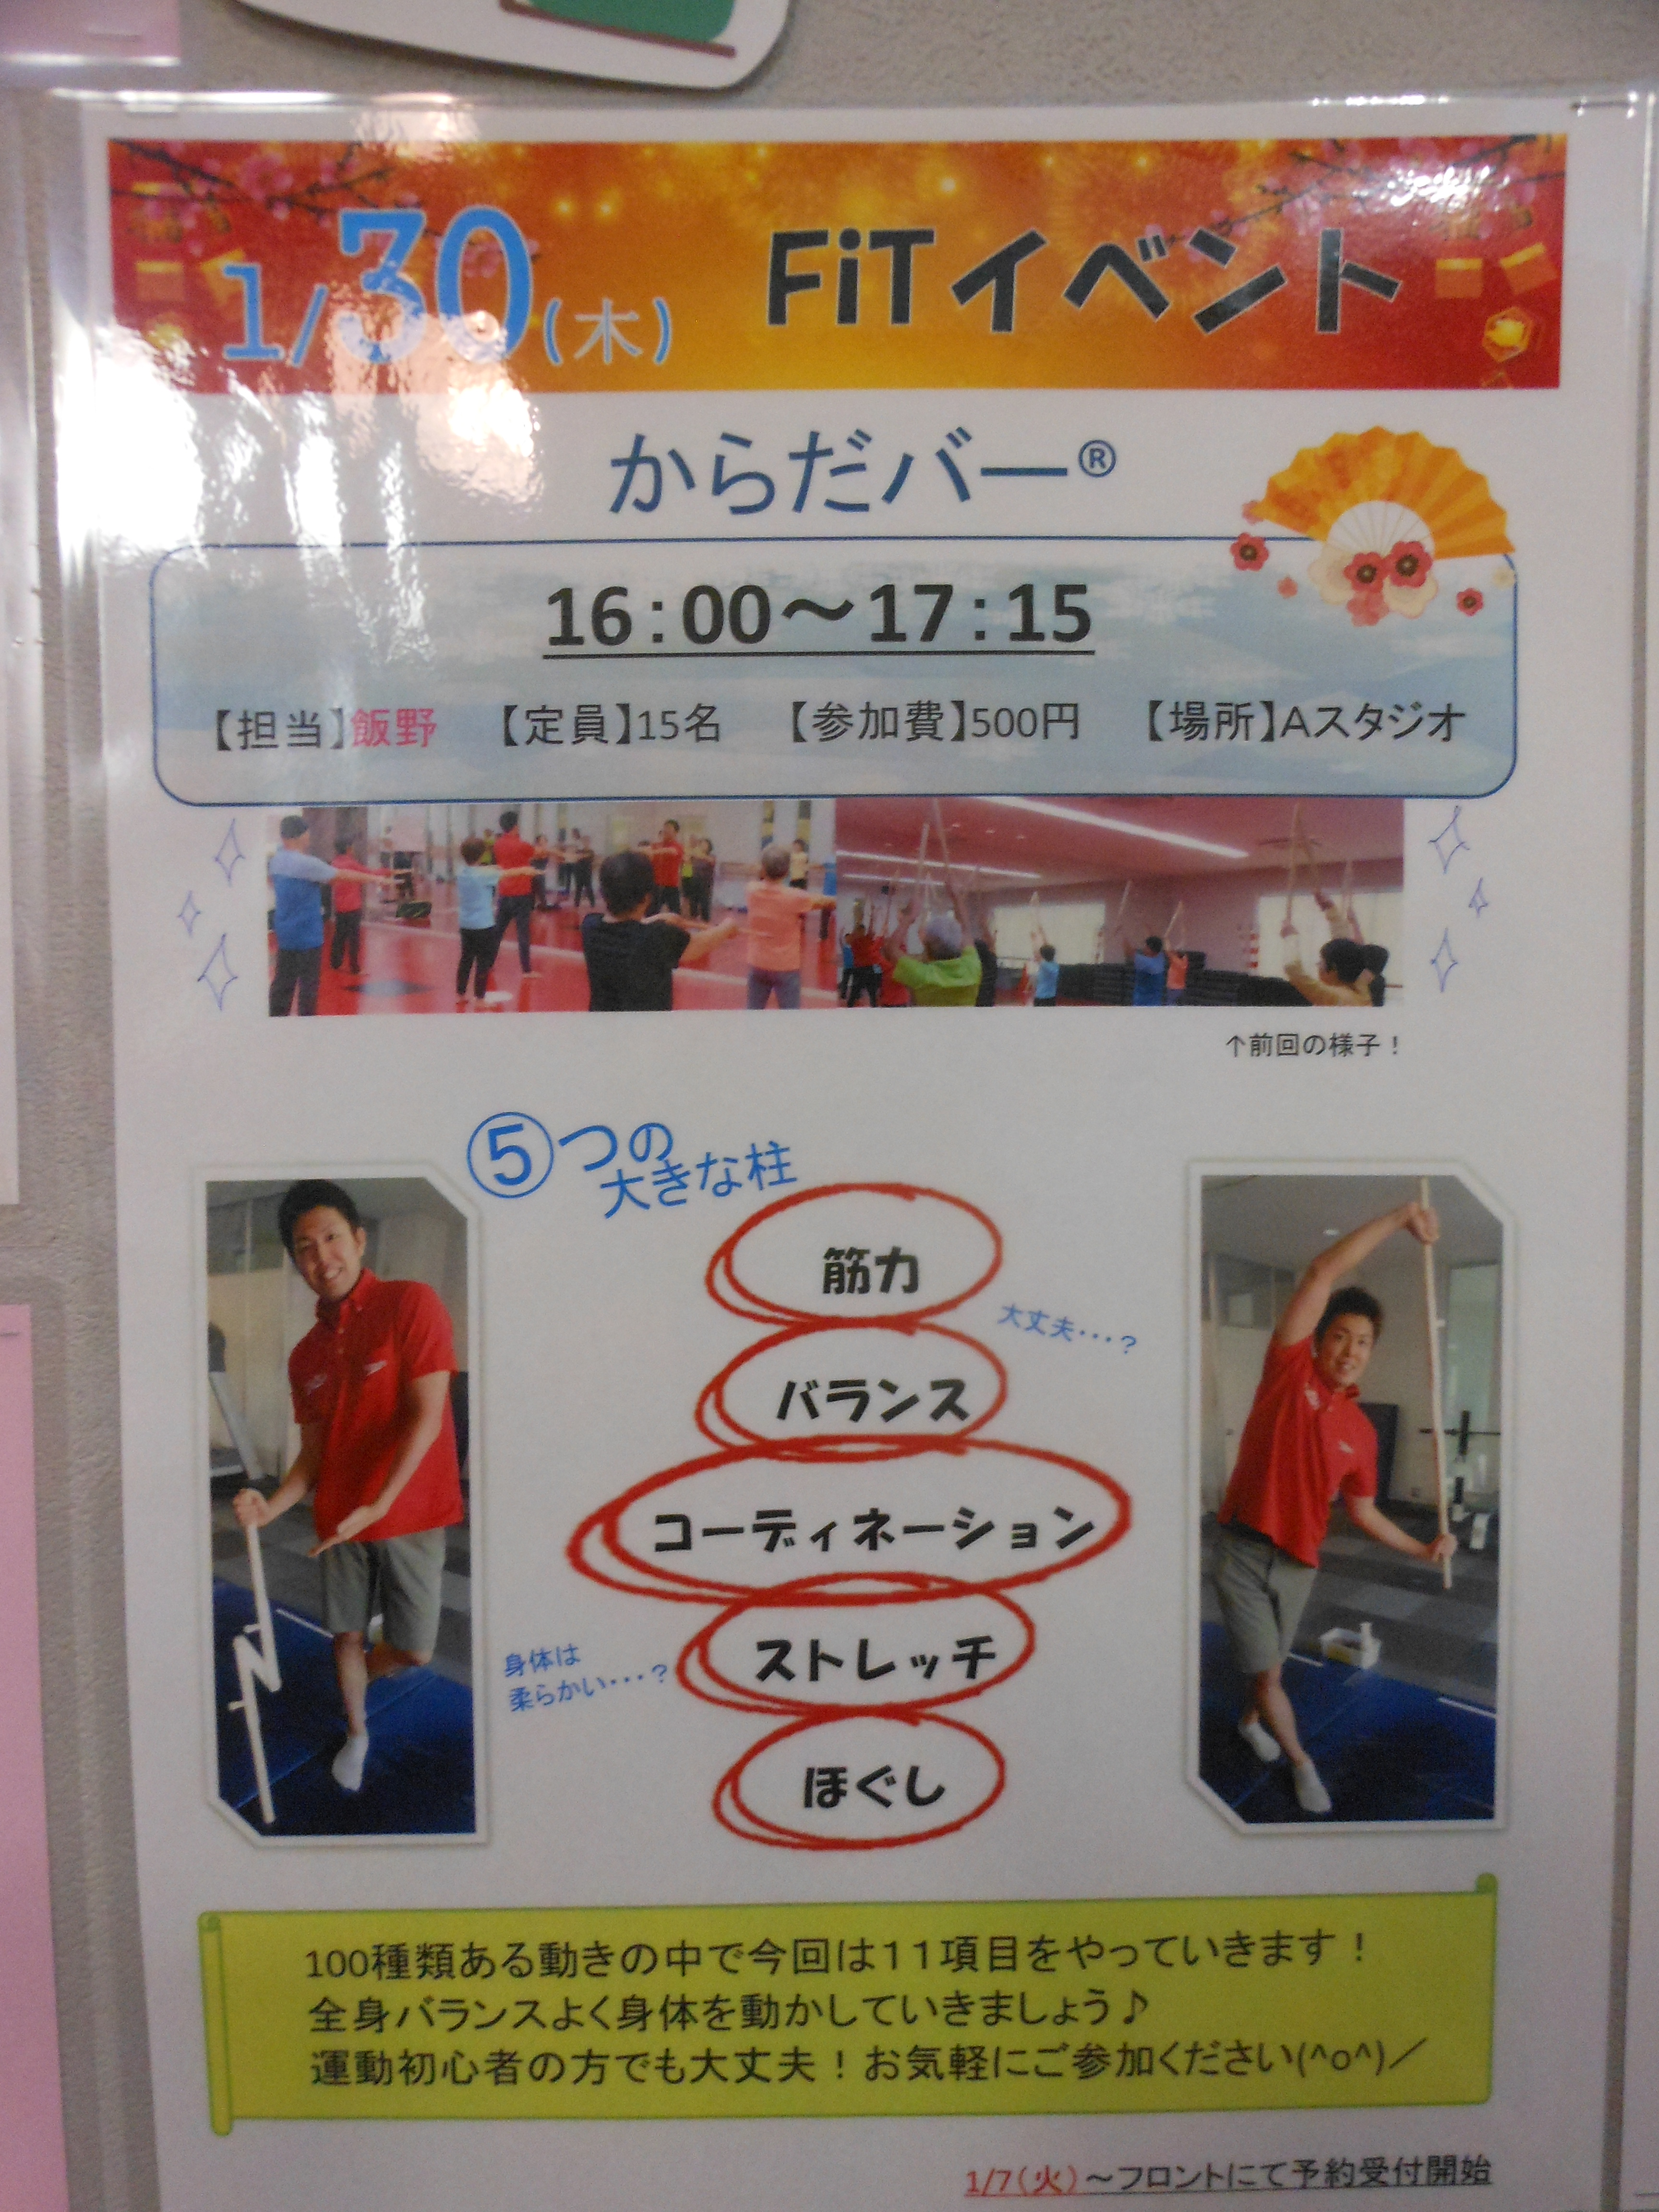 1/30(木) FiTイベント
からだバー®
16:00～17:15
【担当】飯野 【定員】15名 【参加費】500円 【場所】Aスタジオ
↑前回の様子！
⑤つの
大きな柱
筋力
大丈夫・・・？
バランス
コーディネーション
ストレッチ
身体は
柔らかい・・・？
ほぐし
100種類ある動きの中で今回は１１項目をやっていきます！
全身バランスよく身体を動かしていきましょう♪
運動初心者の方でも大丈夫！お気軽にご参加ください(^o^)／
1/7(火)～フロントにて予約受付開始